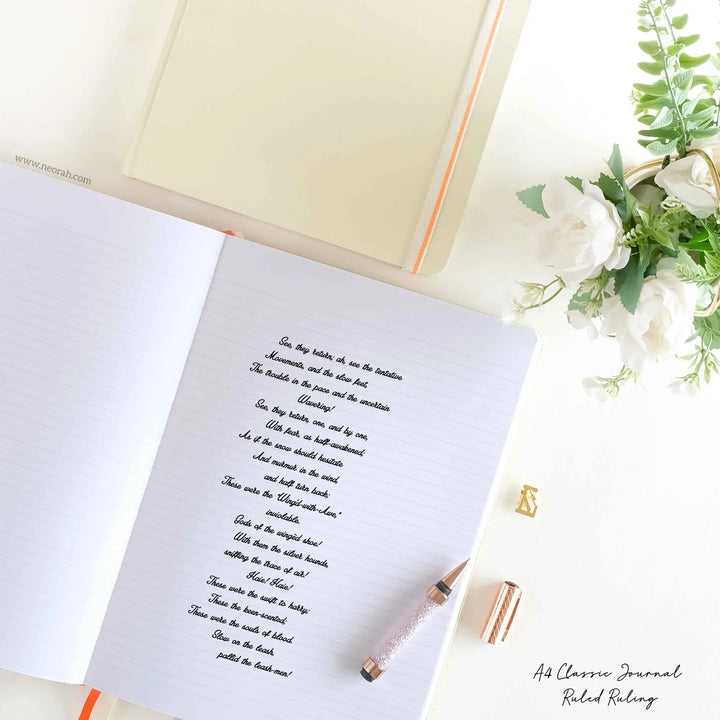 www.neorah.com
See, they return; ah, see the tentative
Movements, and the slow feet,
The trouble in the pace and the uncertain
Wavering!
See, they return, one, and by one,
With fear, as half-awakened;
As if the snow should hesitate
And murmur in the wind,
and half turn back;
These were the "Wing'd-with-Awe,"
inviolable.
Gods of the wingèd shoe!
With them the silver hounds,
sniffing the trace of air!
Haie! Haie!
These were the swift to harry;
These the keen-scented;
These were the souls of blood.
Slow on the leash,
pallid the leash-men!
A4 Classic Journal
Ruled Ruling